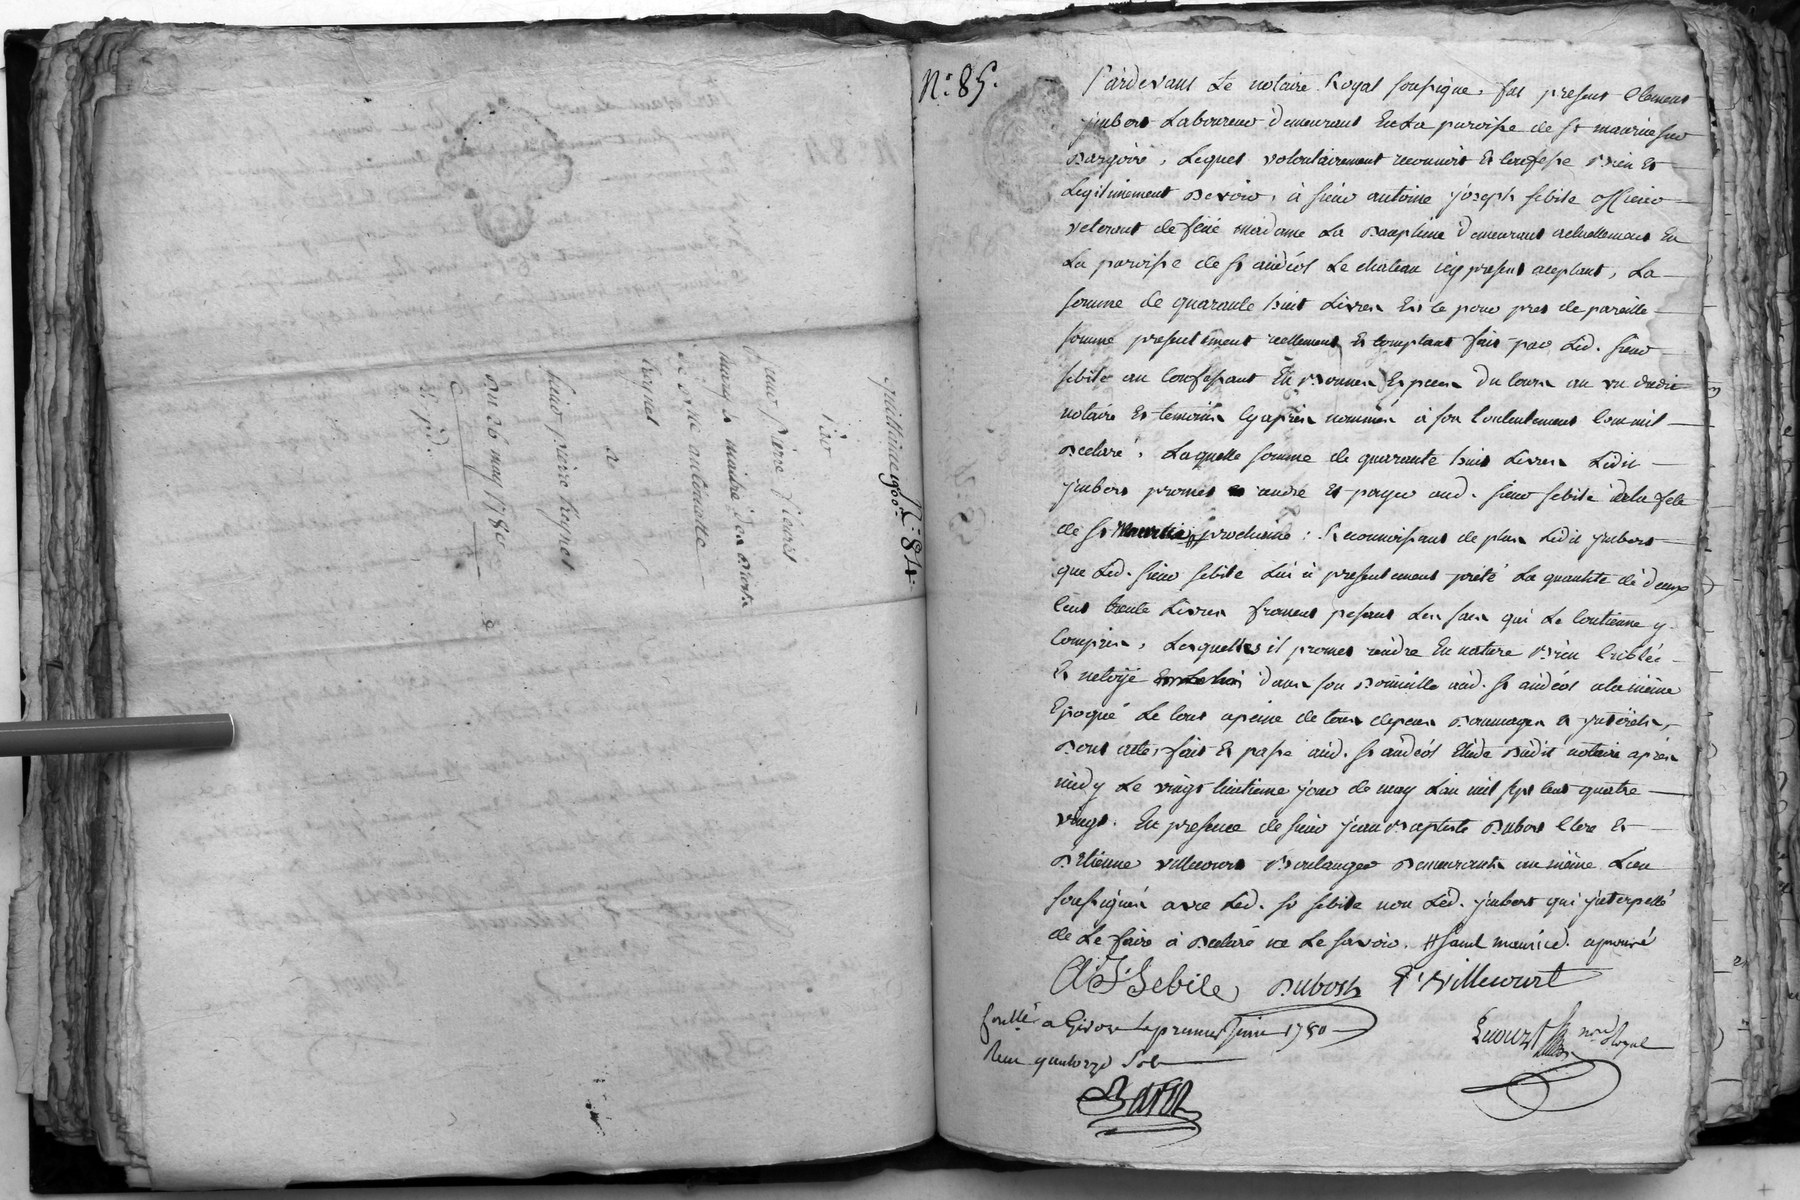 N.° 84.
quittance 1900.#
Pour
Sieur pierre fleuret
marchand maitre
antoinette
treynet
de
Sieur pierre treynet
Du 26 may 1780
Exp.d.
N.° 85.
Pardevant Le notaire Royal soussigné, fut present Clement
jmbert Laboureur demeurant En La paroisse de St maurice sur
Dargoire, Lequel volontairement reconnoit Et Confesse Bien Et
Legitimement Devoir, à sieur antoine joseph sebile officier
veterant de féüe madame La Dauphine demeurant actuellement En
La paroisse de St andéol Le chateau icy present aceptant, La
somme de quarante huit Livres Et ce pour pret de pareille
somme presentement reellement Et comptant fait par Led. sieur
sebile au Confessant En Bonnes Especes Du Cours au vu dudit
notaire Et temoins Cy après nommés à son Contentement Comme il
Declaré, Laquelle somme de quarante huit Livres Ledit
jmbert promet rendre Et payer aud. sieur sebile a la fete
de St prochaine; Reconnoissant de plus Ledit jmbert
que Led. sieur sebile Lui à presentement preté La quantité de deux
Cent trente Livres froment pesant Les sacs qui Le Contienne y
Compris, Lesquelles il promet rendre En nature Bien Criblée
Et netoÿé dans son Domicille aud. St andéol a la même
Epoque Le tout a peine de tous depens Dommages Et jnterêts,
Dont acte, fait Et passé aud. St andéol Etude Dudit notaire après
midy Le vingt huitieme jour de may L'an mil sept cent quatre
vingt. En presence de sieur jean Baptiste Dubost Clerc Et
D'Etienne villecourt Boulanger Demeurants au même Lieu
soussignés avec Led. Sr sebile non Led. jmbert qui jnterpellé
de Le faire à Declaré ne Le savoir. # saint maurice. aprouvé
A. J. Sebile Dubost E. Villecourt
Conllé a Givors Le premier juin 1780
Reçu quatorze Sols
nre Royal